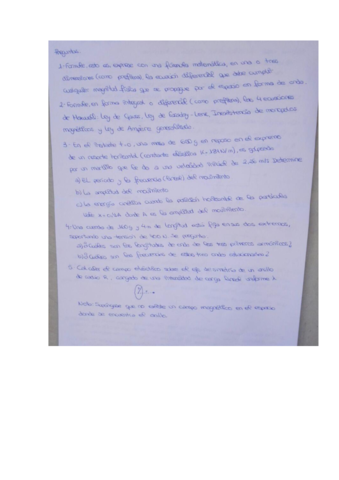 Preguntas:
1- Escribe esto es expresa con una fórmula matemática, en una o tres
dimensiones (como prefieras) la ecuación diferencial que debe cumplir
cualquier magnitud física que se propague por el espacio en forma de onda.
2- Escribe en forma integral o diferencial (como prefieras) las 4 ecuaciones
de Maxwell, Ley de Gauss, Ley de Faraday-Lenz, Inexistencia de monopolos
magnéticos y Ley de Ampère generalizada.
3- En el instante t=0, una masa de en reposo en el extremo
de un resorte horizontal (constante elástica K= ), es golpeada
por un martillo que le da a una velocidad inicial de 2.26 m/s. Determine
a) El periodo y la frecuencia (lineal) del movimiento.
b) La amplitud del movimiento.
c) La energía cinética cuando la posición horizontal de la partícula
vale donde A es la amplitud del movimiento.
4- Una cuerda de y 4m de longitud está fija en sus dos extremos,
soportando una tensión de Se pregunta:
a) ¿Cuáles son las longitudes de onda de los tres primeros armónicos?
b) ¿Cuáles son las frecuencias de estas tres ondas estacionarias?
5- Calcular el campo eléctrico sobre el eje de simetría de un anillo
de radio R, cargado de una densidad de carga lineal uniforme λ.
Nota: Suponga que no existe un campo magnético en el espacio
donde se encuentra el anillo.